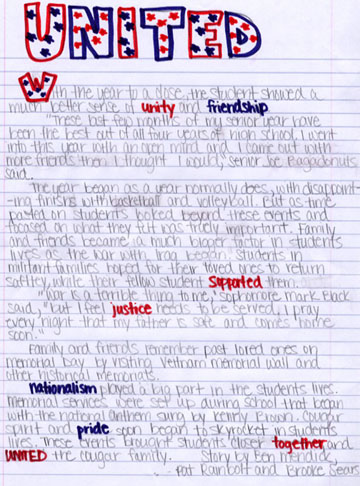 UNITED
With the year to a close, the student showed a
much better sense of unity and friendship.
"These last few months of my senior year have
been the best out of all four years of high school, I went
into this year with an open mind and I came out with
more friends then I thought I would, senior Joe Ragadonuts,
said.
The year began as a year normally does, with disappoint-
-ing finishs with basketball and volleyball. But as time
pasted on students looked beyond these events and
focused on what they felt was truely important. Family
and friends became a much bigger factor in students
lives as the war with Iraq began. Students in
militant families hoped for their loved ones to return
saftley, while their fellow student supported them.
"War is a terrible thing to me," Sophomore Mark Black
said, "but I feel justice needs to be served. I pray
every night that my father is safe and comes home
soon."
Family and friends remember past loved ones on
memorial Day by visiting Vietnam memorial wall and
other historical memorials.
nationalism played a big part in the students lives.
Memorial services were set up during school that began
with the national anthem sung by Kenny Brown. Cougar
spirit and pride soon began to skyrocket in students
lives. These events brought students closer together and
UNITED the cougar family. Story by Ben
Pat Rainbolt and Brooke Sears